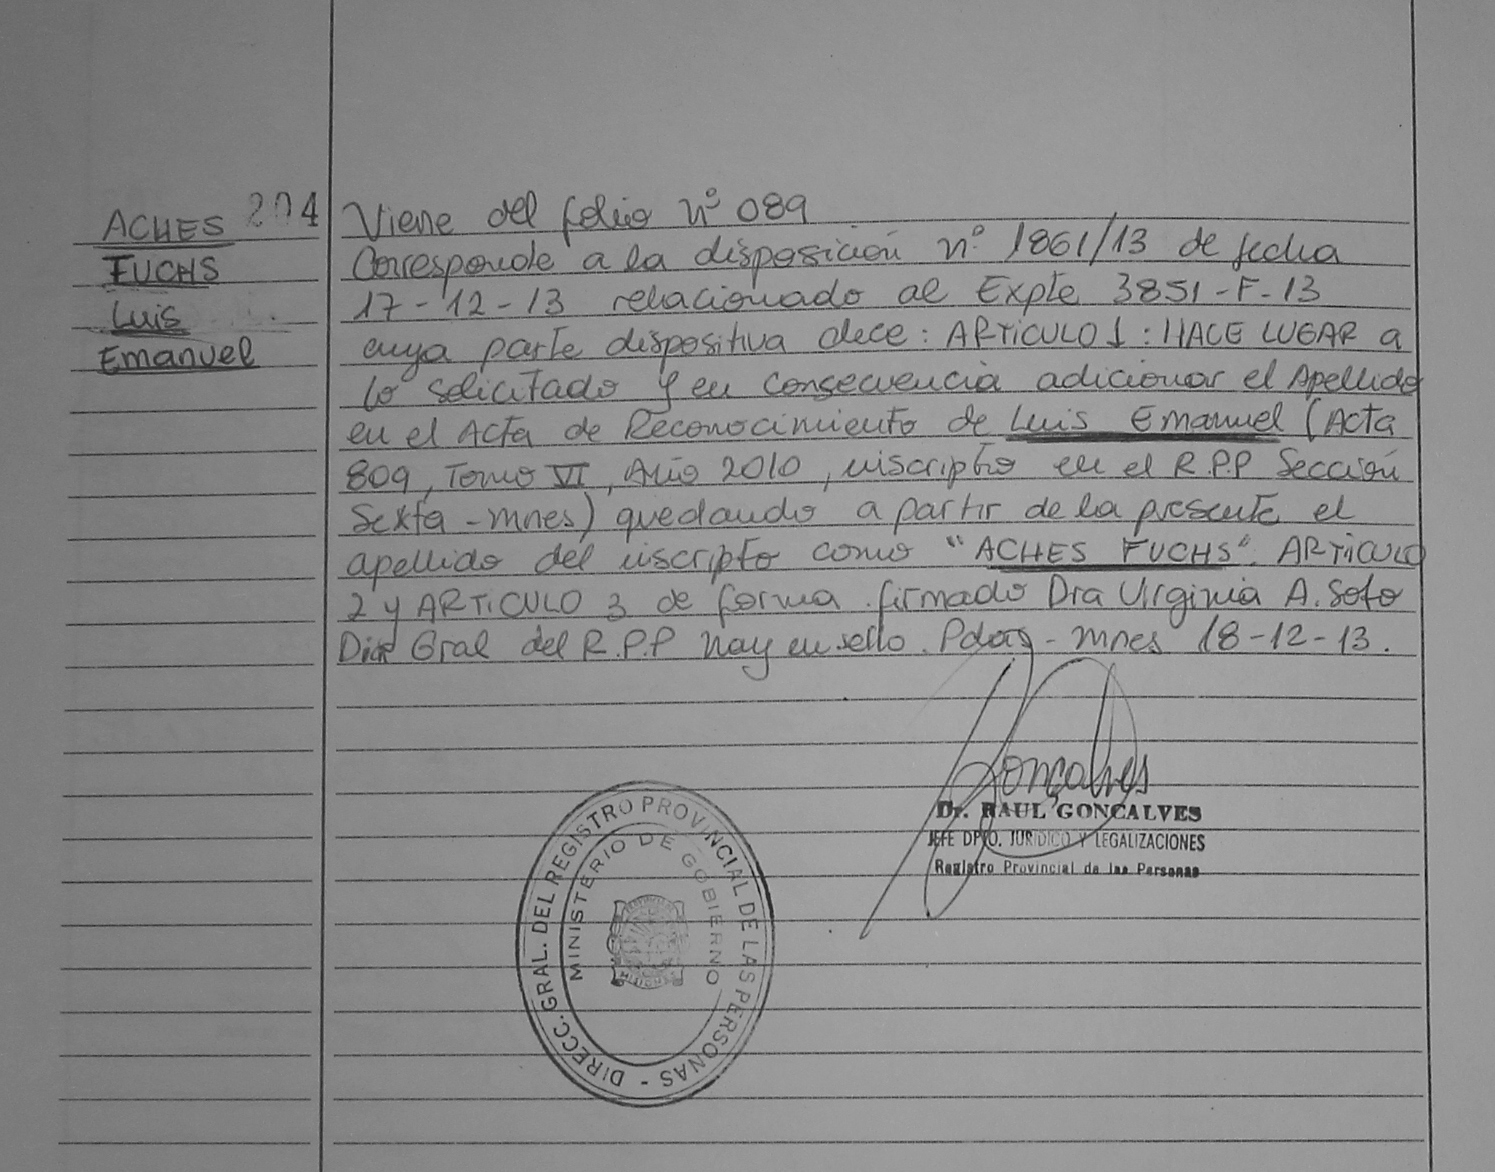 204
ACHES
FUCHS
Luis
Emanuel
Viene del folio nº 089
Corresponde a la disposición nº 1861/13 de fecha
17-12-13 relacionado al Expte 3851-F-13
cuya parte dispositiva dice: ARTICULO 1: HACE LUGAR a
lo solicitado y en consecuencia adicionar el Apellido
en el Acta de Reconocimiento de Luis Emanuel (Acta
809, Tomo VI, Año 2010, inscripto en el R.P.P Sección
Sexta - Mnes) quedando a partir de la presente el
apellido del inscripto como "ACHES FUCHS". ARTICULO
2 y ARTICULO 3 de forma. firmado Dra Virginia A. Soto
Gral del R.P.P hay un sello. Pdas - Mnes 18-12-13.
Gonçalves
Dr. RAUL GONÇALVES
JEFE DPTO. JURIDICO Y LEGALIZACIONES
Registro Provincial de las Personas
DIRECC. GRAL. DEL REGISTRO PROVINCIAL DE LAS PERSONAS -
MINISTERIO DE GOBIERNO